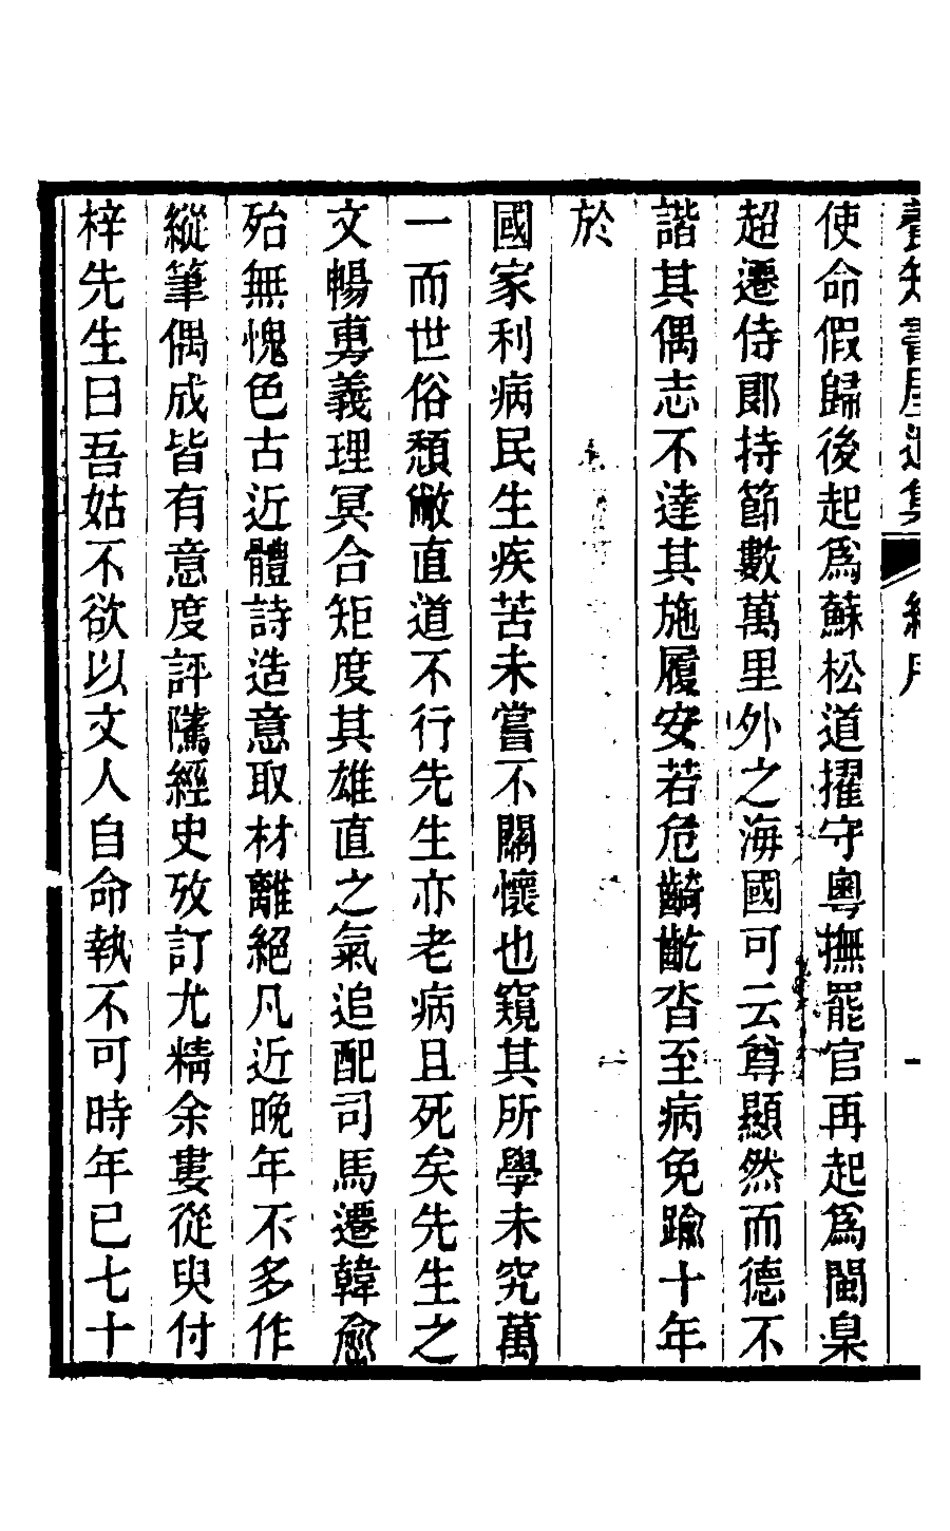 養知書屋遺集 總序 一
使命假歸後起爲蘇松道擢守粵撫罷官再起爲閩臬
超遷侍郞持節數萬里外之海國可云尊顯然而德不
諧其偶志不達其施履安若危齮齕沓至病免踰十年
於
國家利病民生疾苦未嘗不關懷也窺其所學未究萬
一而世俗頹敝直道不行先生亦老病且死矣先生之
文暢專義理冥合矩度其雄直之氣追配司馬遷韓愈
殆無愧色古近體詩造意取材離絕凡近晚年不多作
縱筆偶成皆有意度評隲經史攷訂尤精余婁從臾付
梓先生曰吾姑不欲以文人自命執不可時年已七十